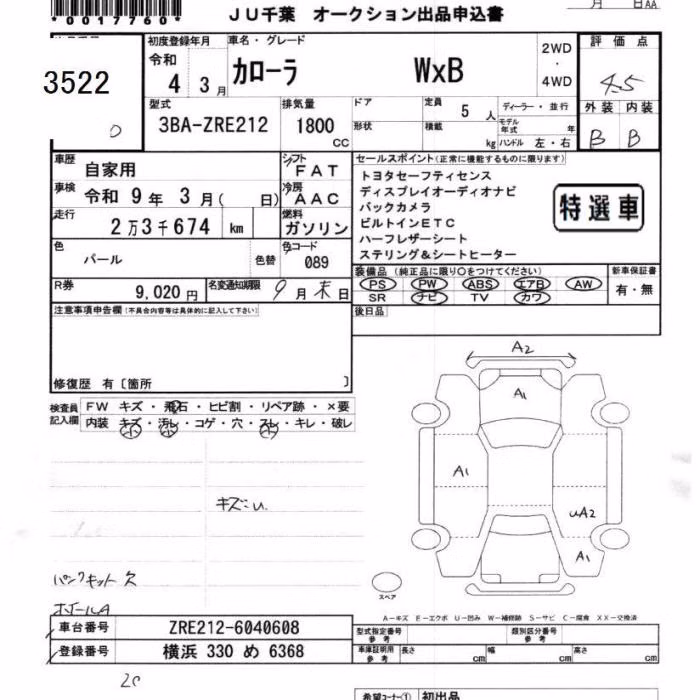 *0017760*
ＪＵ千葉 オークション出品申込書
月 日AA
3522
0
初度登録年月
令和
4 3月
車名・グレード
カローラ WxB
2WD
・
4WD
評価点
4.5
外装 内装
B B
型式
3BA-ZRE212
排気量
1800
CC
ドア
形状
定員
5人
積載
kg
ディーラー・並行
モデル年式 年
ハンドル 左・右
車歴
自家用
シフト
FAT
車検
令和 9年 3月( 日)
冷房
AAC
走行
2万3千674 km
燃料
ガソリン
色
パール
色替
色コード
089
R券
9,020円
名変通知期限
9月末日
セールスポイント(正常に機能するものに限ります)
トヨタセーフティセンス
ディスプレイオーディオナビ
バックカメラ
ビルトインETC
ハーフレザーシート
ステリング＆シートヒーター
特選車
装備品 (純正品に限り○をつけてください)
PS PW ABS エアB AW
SR ナビ TV カワ
新車保証書
有・無
後日品
注意事項申告欄(不具合内容等は具体的に記入して下さい)
修復歴 有〔箇所 〕
検査員
記入欄
FW キズ・飛石・ヒビ割・リペア跡・×要
内装 キズ・汚レ・コゲ・穴・スレ・キレ・破レ
小 小 小
キズ小
パンクキット欠
A2
A1
A1
uA2
A1
スペア
A－キズ E－エクボ U－凹み W－補修跡 S－サビ C－腐食 XX－交換済
車台番号 ZRE212-6040608
登録番号 横浜 330 め 6368
型式指定番号
参考
類別区分番号
参考
車庫証明用
参考
長さ cm 幅 cm 高さ cm
希望コーナー① 初出品